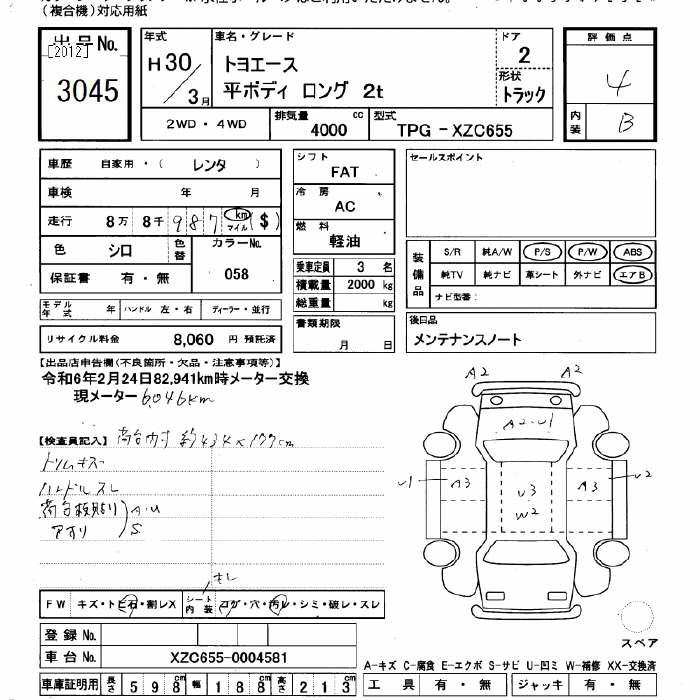 (複合機)対応用紙
出品No.
[2012]
3045
年式
H30/3月
車名・グレード
トヨエース
平ボディ ロング 2t
ドア
2
形状
トラック
評価点
4
内装
B
2WD・4WD
排気量 4000 cc
型式 TPG-XZC655
車歴 自家用・( レンタ )
車検 年 月
走行 8万 8千 987 km マイル ($)
色 シロ 色替 カラーNo.
保証書 有・無 058
モデル年式 年 ハンドル 左・右 ディーラー・並行
リサイクル料金 8,060 円 預託済
シフト
FAT
冷房
AC
燃料
軽油
乗車定員 3 名
積載量 2000 kg
総重量 kg
書類期限
月 日
セールスポイント
装備品
S/R 純A/W P/S P/W ABS
純TV 純ナビ 革シート 外ナビ エアB
ナビ型番:
後日品
メンテナンスノート
【出品店申告欄(不良箇所・欠品・注意事項等)】
令和6年2月24日82,941km時メーター交換
現メーター 6,046km
【検査員記入】 荷台内寸 約434×177cm
トリムキズ
ハンドルスレ
荷台板貼り A・U
アオリ S
A2 A2
A2・U1
U1 A3 U3 W2 A3 U2
キレ
FW キズ・トビ石・割レX シート内装 コゲ・穴・汚レ・シミ・破レ・スレ
登録No.
車台No. XZC655-0004581
車庫証明用 長さ 598 cm 幅 188 cm 高さ 213 cm
スペア
A-キズ C-腐食 E-エクボ S-サビ U-凹ミ W-補修 XX-交換済
工具 有・無 ジャッキ 有・無